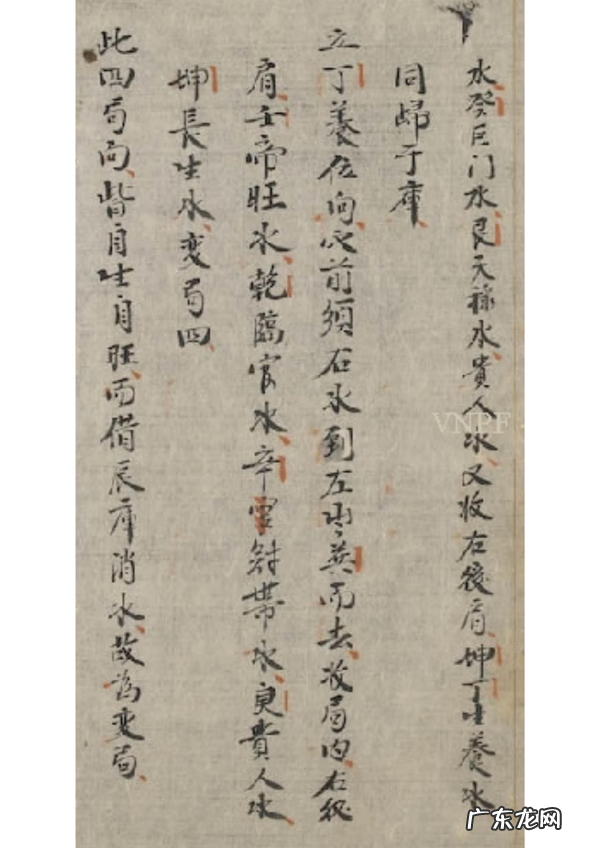 水癸巨门水艮天祿水貴人水又收右後肩坤丁生養水
同歸于庫
立丁養位向必前須右水到左出巽而去收局内右後
肩壬帝旺水乾臨官水辛官冠帶水庚貴人水
坤長生水変局四
此四局向皆自生自旺而借辰庫消水故為变局
VNPF
广东龙网